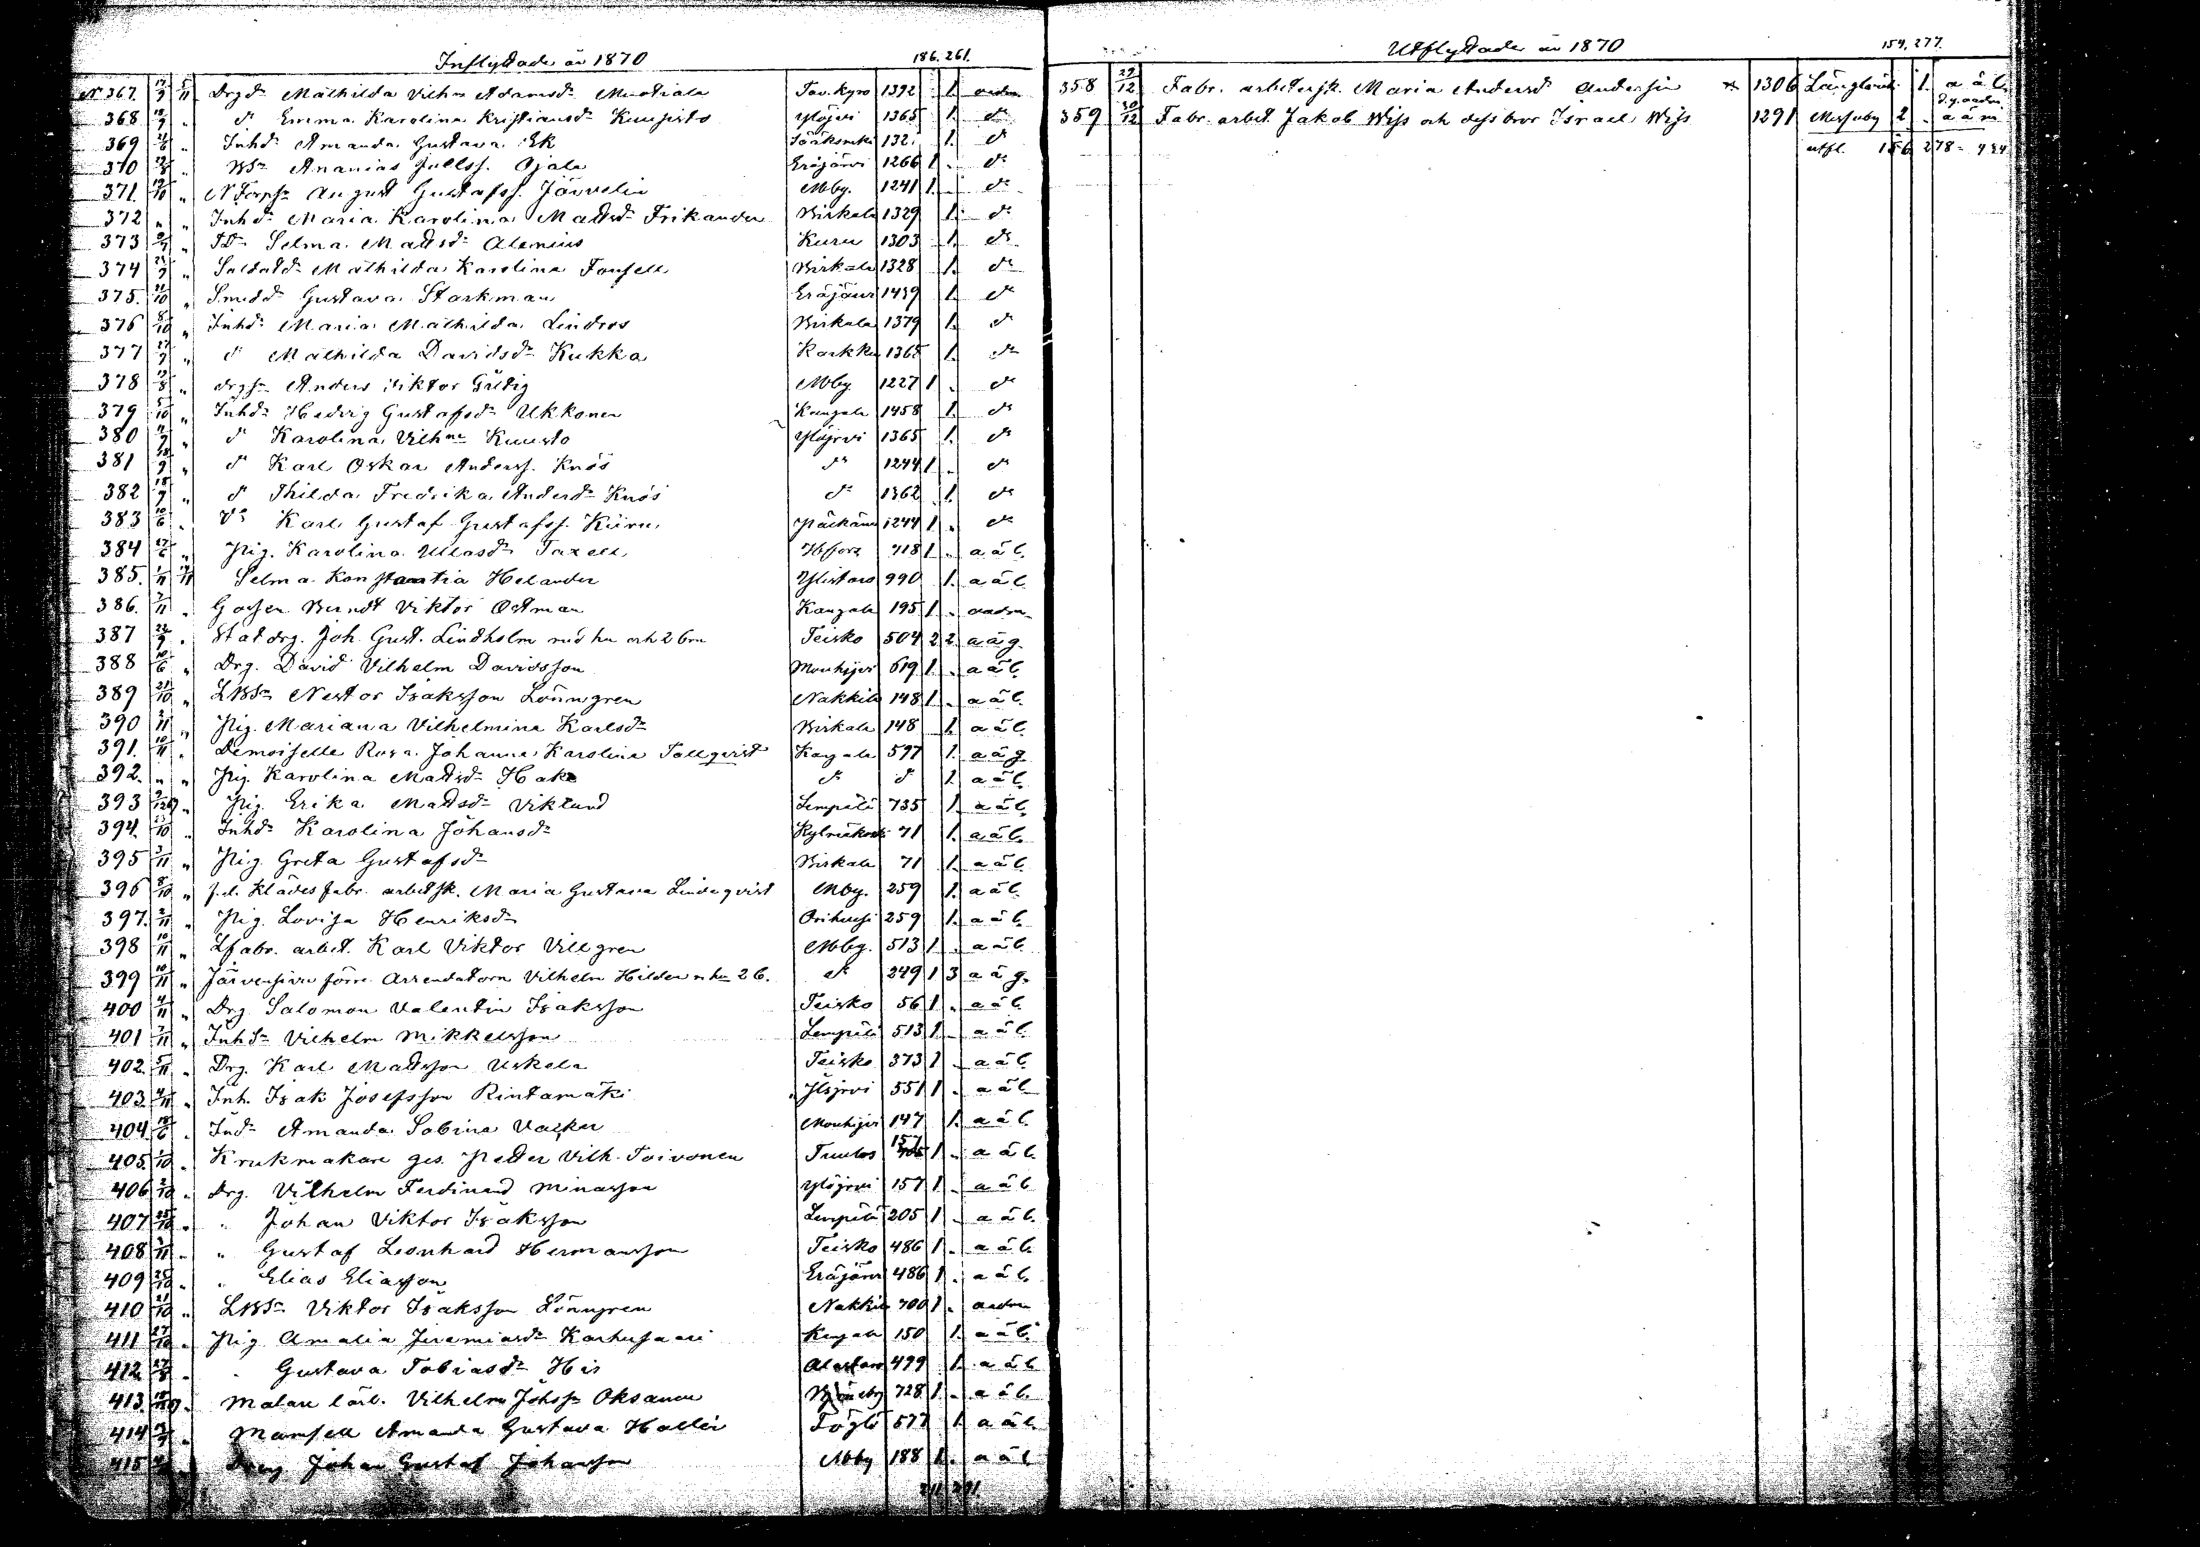 Inflyttade år 1870 186. 261.
N 367. 17/9 5/11 Drgdr Mathilda Vilhna Adamsdr Muotiala Tav. Kyro 1392 1. andra
368 18/9 " dr Emma Karolina Kristiansdr Kuusisto Ylöjvi 1365 1. dr
369 21/6 " Inhdr Amanda Gustava Ek 132. 1. dr
370 " Ananias Ojala Eräjärvi 1266 1 . dr
371. 19/10 " August Gustafss. Järvelin Mby. 1241 1. . dr
372 " " Inhdr Maria Karolina Mattsdr Frikander Birkala 1329 1. dr
373 " Selma Mattsdr Alenius Kuru 1303 1. dr
374 21/9 " Soldatdr Mathilda Karolina Forsell Birkala 1328 1. dr
375. 21/10 " Smeddr Gustava Starkman Eräjärvi 1439 1. dr
376 8/10 " Inhdr Maria Mathilda Lindros Birkala 1379 1. dr
377 27/9 " dr Mathilda Davidsdr Kukka Karkku 1365 1. dr
378 " drgsn Anders Viktor Gültig Mby. 1227 1 . dr
379 5/10 " Inhdr Hedvig Gustafsdr Ukkonen Kangala 1458 1. dr
380 " dr Karolina Vilhna Kuusto Ylöjrvi 1365 1. dr
381 18/9 " dr Karl Oskar Anderss. Knös dr 1244 1 . dr
382 18/9 " dr Thilda Fredrika Andersdr Knös dr 1362 1. dr
383 10/6 " dr Karl Gustaf Gustafss. Kiiru Pälkäne 1244 1 . dr
384 27/6 " Pig. Karolina Ullasdr Taxell Hfors 718 1 . a ä l.
385. 1/11 Selma Konstantia Helander Ylistaro 990 1. a ä l.
386. 7/11 " Berndt Viktor Östman Kangala 195 1 . andra
387 22/9 " Statdrg. Joh. Gust. Lindholm med hu och 2 brn Teisko 504 2 2. a ä g.
388 10/6 " Drg. David Vilhelm Davidsson Mouhijvi 619 1 . a ä l.
389 21/10 " Nestor Isaksson Lönngren Nakkila 148 1 . a ä l.
390 2/11 " Pig. Mariana Vilhelmina Karlsdr Birkala 148 1. a ä l.
391. 10/11 " Demoiselle Rosa Johanna Karolina Tallqvist Kangala 597 1. a ä g
392. " " Pig. Karolina Mattsdr Hake dr dr 1. a ä l.
393 " Pig. Erika Mattsdr Viklund Lempälä 735 1. a ä l.
394. 23/10 " Inhdr Karolina Johansdr 71 1. a ä l.
395 3/11 " Pig. Greta Gustafsdr Birkala 71 1. a ä l.
396 8/10 " f.d. klädesfabr. arbetsk. Maria Gustava Lindqvist Mby. 259 1. a ä l.
397. 2/11 " Pig. Lovisa Henriksdr Orihvesi 259 1. a ä l.
398 10/11 " Lfabr. arbet. Karl Viktor Villgren Mby. 513 1 . a ä l.
399 10/11 " Järvensivu förre Arrendatorn Vilhelm Hilden m hu 2 b. dr 249 1 3 a ä g.
400 4/11 " Drg. Salomon Valentin Isaksson Teisko 56 1 . a ä l.
401 7/11 " Inhsn Vilhelm Mikkelsson Lempälä 513 1 . a ä l.
402. 5/11 " Drg. Karl Mattsson Uskela Teisko 373 1 . a ä l.
403. 4/11 " Inh. Isak Josefsson Rintamäki Ylöjrvi 551 1 . a ä l.
404. " Indr Amanda Sabina Vacker Mouhijvi 147 1. a ä l.
405. 1/10 " Krukmakare ges. Petter Vilh. Toivonen Tuulos 157 1 . a ä l.
406 2/10 " Drg. Vilhelm Ferdinand Minasson Ylöjrvi 157 1 . a ä l.
407 25/10 " " Johan Viktor Isaksson Lempälä 205 1 . a ä l.
408 3/11 " " Gustaf Leonhard Hermansson Teisko 486 1 . a ä l.
409 25/10 " " Elias Eliasson Eräjärvi 486 1 . a ä l.
410 21/10 " Viktor Isaksson Lönngren Nakkila 700 1 . andra
411 27/10 " Pig. Amalia Jeremiasdr Karhusaari Kangala 150 1. a ä l.
412. 27/8 " " Gustava Tobiasdr His Alastaro 499 1. a ä l.
413. " Målare lärl. Vilhelm Johsn Oksanen Bjöneby 728 1. . a ä l.
414 " Mamsell Amanda Gustava Hallén Föglö 577 1. a ä l.
415 Dreng Johan Gustaf Johansson Mby 188 1. . a ä l.
211. 291.
Utflyttade år 1870 154. 277.
358 29/12 Fabr. arbetersk. Maria Andersd Andersin 1306 Längelmäki 1. a ä l.
359 30/12 Fabr. arbet. Jakob Wiss och dess bror Israel Wiss 1291 Messuby 2 . d.y. andra a ä m
utfl. 156 278 = 434